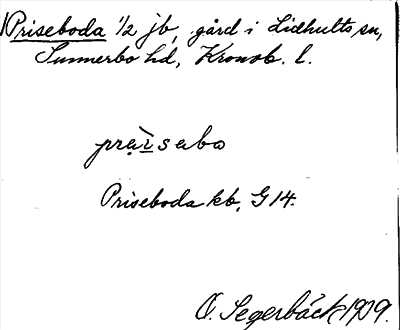 Priseboda ½ jb, gård i Lidhults sn,
Sunnerbo hd, Kronob. l.
Priseboda kb, G 14.
O. Segerbäck 1909.